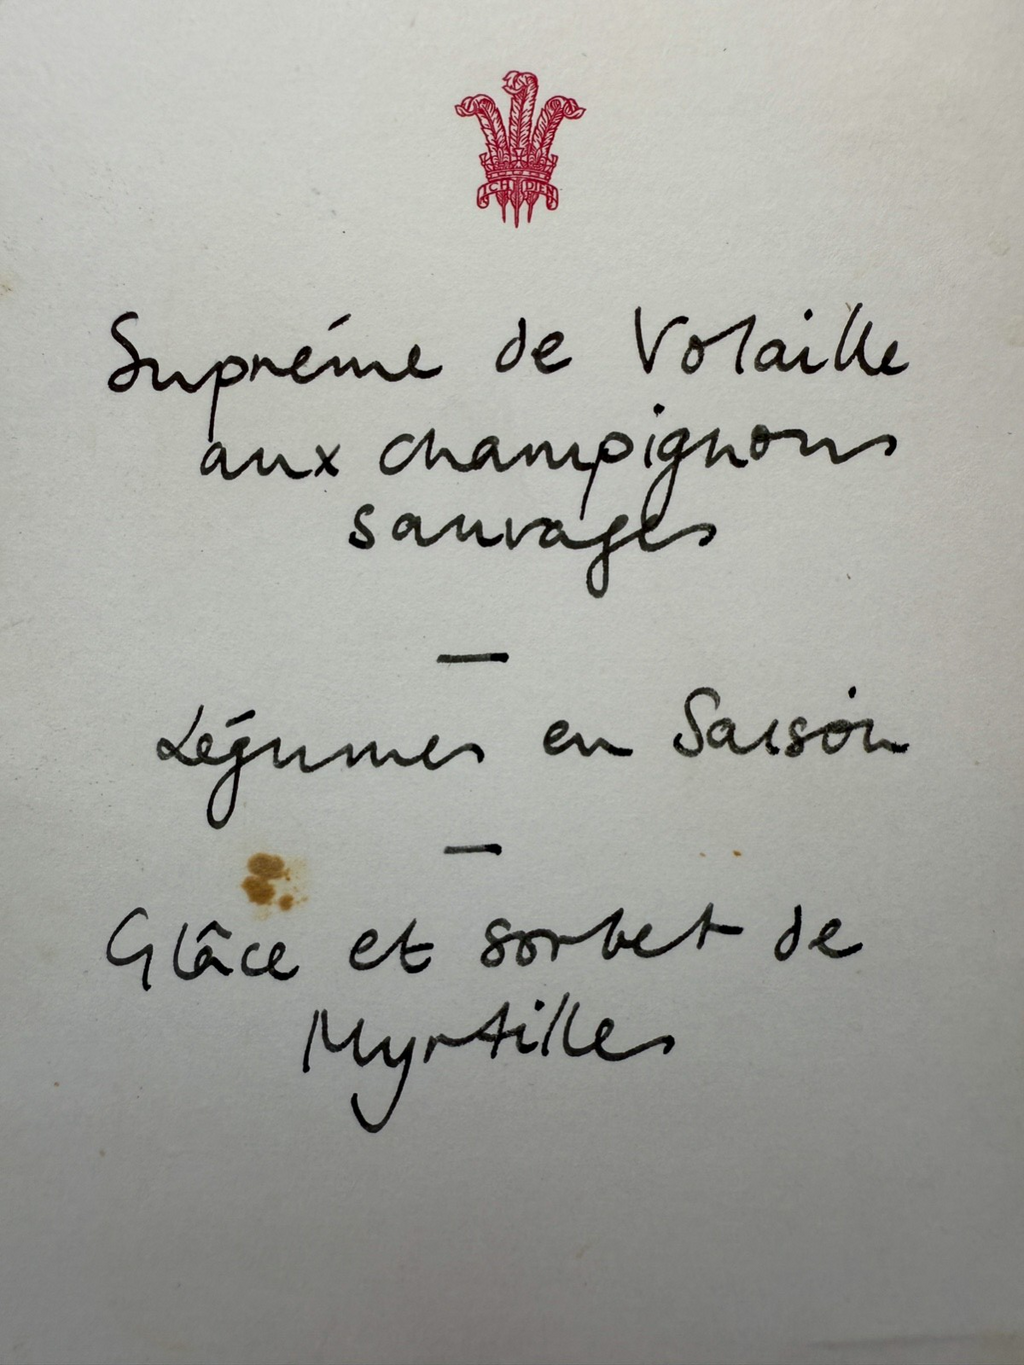 ICH DIEN
Supréme de Volaille
aux champignons
sauvages
—
Légumes en Saison
—
Glâce et sorbet de
Myrtilles